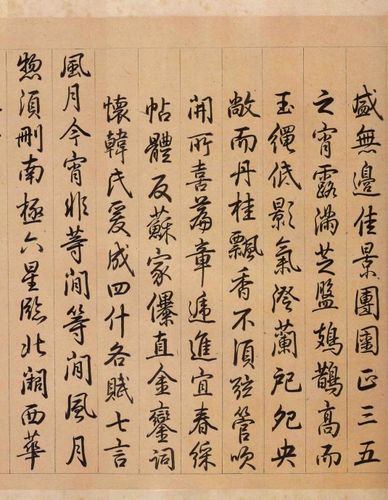 盛無邊佳景團圞正三五
之宵露滿芝盤鳷鵲高而
玉繩低影氣澄蘭戺夗央
敞而丹桂飄香不須弦管吹
開所喜篇章遞進宜春綵
帖體反蘇家儤直金鑾詞
懷韓氏爰成四什各賦七言
風月今宵非等閒等閒風月
惣須刪南極六星臨北闕西華